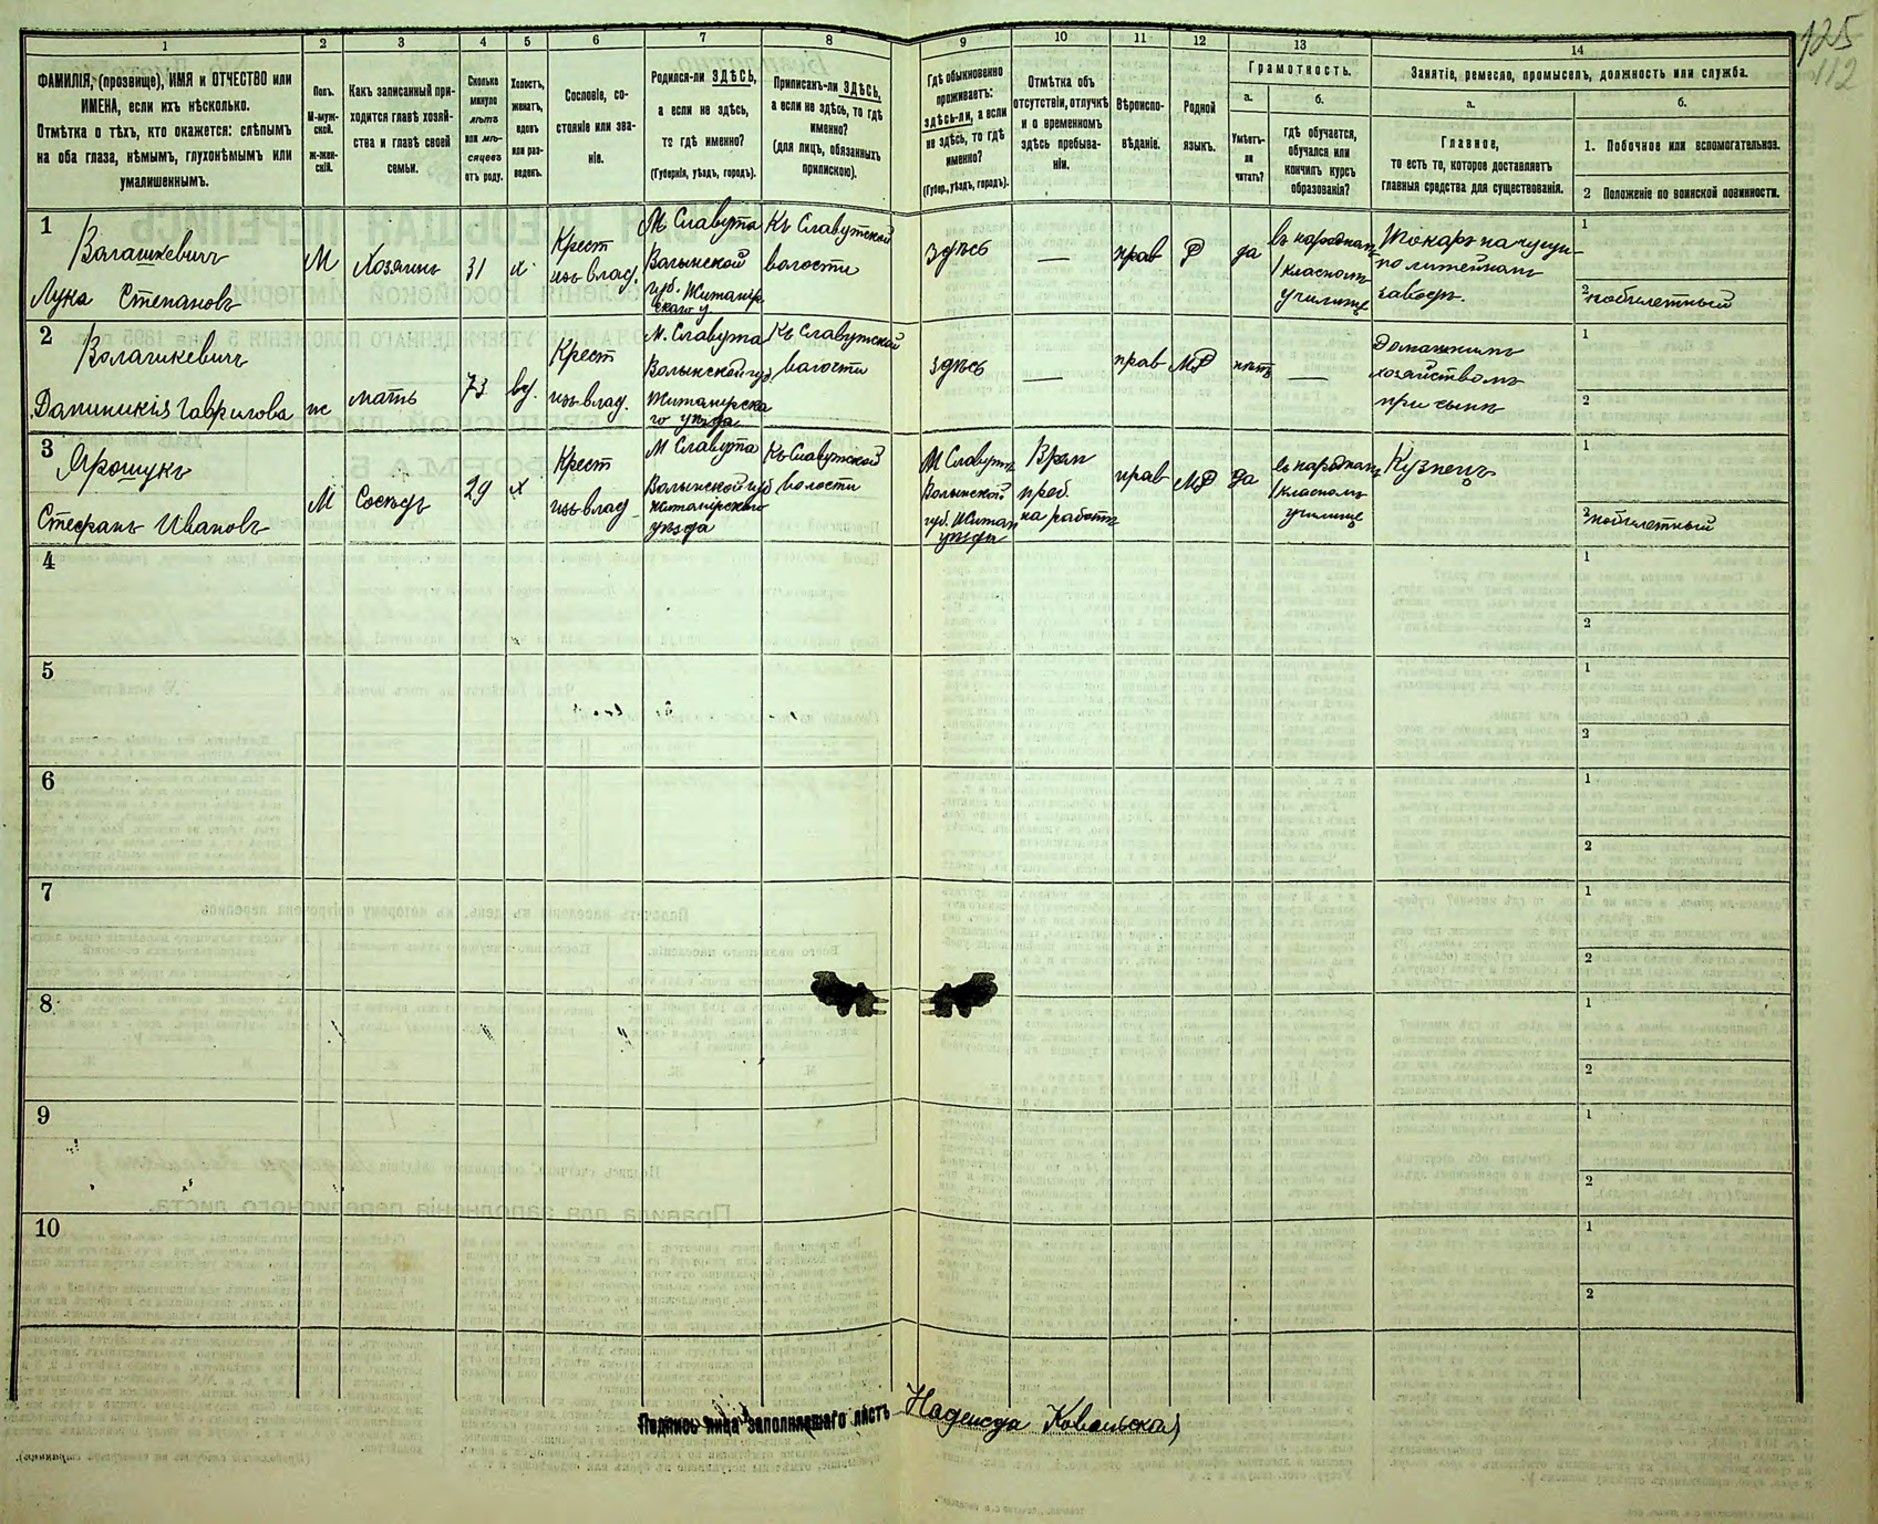 125
112
1
2
3
4
5
6
7
8
9
10
11
12
13
14
ФАМИЛІЯ, (прозвище), ИМЯ и ОТЧЕСТВО или
ИМЕНА, если ихъ нѣсколько.
Отмѣтка о тѣхъ, кто окажется: слѣпымъ
на оба глаза, нѣмымъ, глухонѣмымъ или
умалишеннымъ.
Полъ.
М-муж-
ской.
ж-жен-
скій.
Какъ записанный при-
ходится главѣ хозяй-
ства и главѣ своей
семьи.
Сколько
минуло
лѣтъ
или мѣ-
сяцевъ
отъ роду.
Холостъ,
женатъ,
вдовъ
или раз-
веденъ.
Сословіе, со-
стояніе или зва-
ніе.
Родился-ли ЗДѢСЬ,
а если не здѣсь,
то гдѣ именно?
(Губернія, уѣздъ, городъ).
Приписанъ-ли ЗДѢСЬ,
а если не здѣсь, то гдѣ
именно?
(для лицъ, обязанныхъ
припискою).
Гдѣ обыкновенно
проживаетъ:
здѣсь-ли, а если
не здѣсь, то гдѣ
именно?
(Губер., уѣздъ, городъ).
Отмѣтка объ
отсутствіи, отлучкѣ
и о временномъ
здѣсь пребыва-
ніи.
Вѣроиспо-
вѣданіе.
Родной
языкъ.
Грамотность.
а.
Умѣетъ-
ли
читать?
б.
гдѣ обучается,
обучался или
кончилъ курсъ
образованія?
Занятіе, ремесло, промыселъ, должность или служба.
а.
Главное,
то есть то, которое доставляетъ
главныя средства для существованія.
б.
1. Побочное или вспомогательное.
2 Положеніе по воинской повинности.
1
Волашкевичъ
Лука Степановъ
М
Хозяинъ
31
х
Крест
изъ влад.
М Славута
Волынской
губ. Житомір
скаго у
Къ Славутской
волости
здѣсь
—
прав
Р
да
въ народном
1 класномъ
училище
Токарь на чугун-
но литейномъ
заводѣ.
1
2 побилетный
2
Волашкевичъ
Доминикія Гаврилова
ж
мать
73
вд.
Крест
изъ влад.
М. Славута
Волынской губ
Житомірска
го уѣзда
Къ Славутской
волости
здѣсь
—
прав
МР
нѣтъ
—
Домашнимъ
хозяйствомъ
при сынѣ
1
2
3
Ярошукъ
Стефанъ Ивановъ
М
Сосѣдъ
29
х
Крест
изъ влад
М Славута
Волынской губ
Житомірскаго
уѣзда
Къ Славутской
волости
М Славута
Волынской
губ. Житом
уѣзда
Врем
преб.
на работѣ
прав
МР
да
въ народном
1 класномъ
училище
Кузнецъ
1
2 побилетный
4
1
2
5
1
2
6
1
2
7
1
2
8
1
2
9
1
2
10
1
2
Подпись лица заполнявшаго листъ Надежда Ковальская